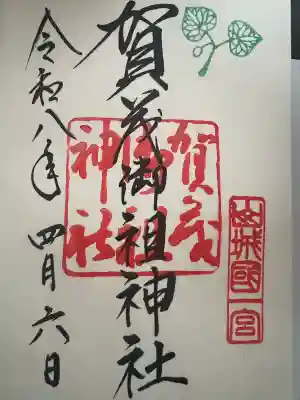 山城國一宮
賀茂御祖神社
賀茂御祖神社
令和八年四月六日